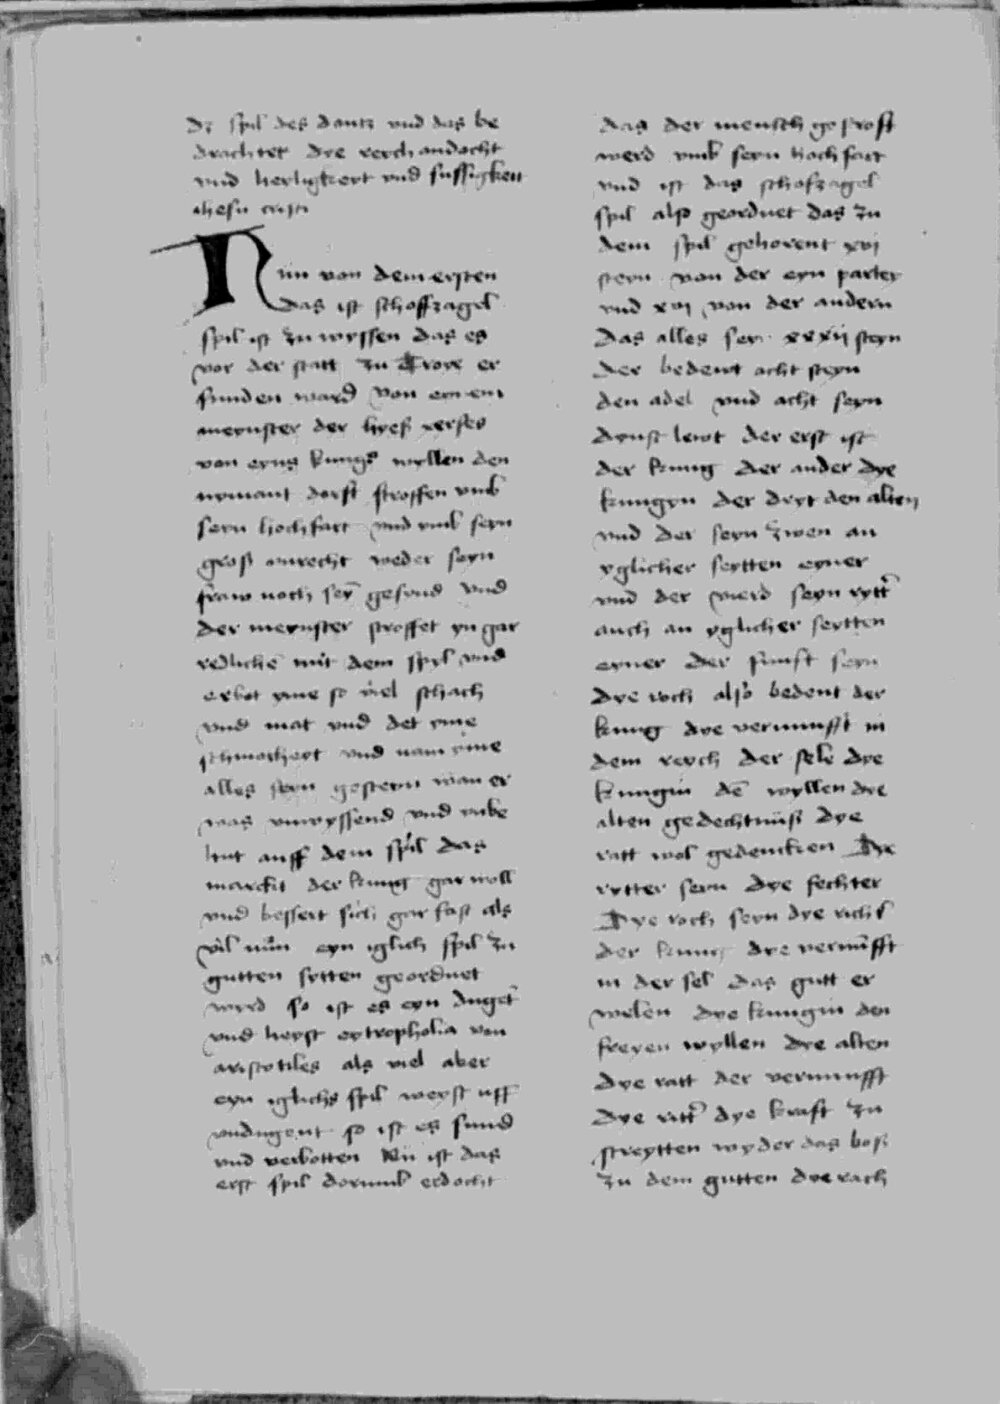 dz spil des dantz vnd das be
drachtet dye reych andocht
vnd herligkeyt vnd sussigkeit
ihesu cristi
Nun von dem ersten
das ist schoffzagel
spil ist zu wyssen das es
vor der statt zu Troye er
funden ward von eynem
meynster der hyeß xerses
von eyns kungs wyllen den
nymant dorst stroffen vmb
seyn hochfart vnd vmb seyn
groß vnrecht weder seyn
fraw noch sey̅ gesynd vnd
der meynster stroffet yn gar
redliche̅ mit dem spyl vnd
erbot yme so viel schach
vnd mat vnd det yme
schmocheyt vnd nam yme
alles seyn gesteyn wan er
was vnwyssend vnd vnbe
hut auff dem spil das
marckt der kung gar woll
vnd bessert sich gar fast als
vil nun eyn iglich spil zu
gutten sytten geordnet
wyrd so ist es eyn duget
vnd heyst eytropholia von
aristotiles als viel aber
eyn iglichs spil weyst uff
vndugent so ist es sund
vnd verbotten Nu̅ ist das
erst spil dorumb erdocht
das der mensch gestroft
werd vmb seyn hochfart
vnd ist das schofzagel
spil also geordnet das zu
dem spil gehorent xvi
steyn von der eyn partey
vnd xvi von der andern
das alles seyn xxxii steyn
der bedeut acht steyn
den adel vnd acht seyn
dynst lewt der erst ist
der kung der ander dye
kungyn der dryt den alten
vnd der seyn zwen an
yglicher seytten eyner
vnd der vierd seyn rytt᷑
auch an yglicher seytten
eyner der funft seyn
dye roch also bedeut der
kung dye vernunfft in
dem reych der sele dye
kungin de̅ wyllen dye
alten gedechtnuß dye
ratt wol gedencken Dye
rytter seyn dye fechter
Dye roch seyn dye richt᷑
der kung dye vernu̅fft
in der sel das gutt er
welen dye kungin den
freyen wyllen dye alten
dye ratt der vernunfft
dye ritt᷑ dye kraft zu
streytten wyder das boß
zu dem gutten dye rach